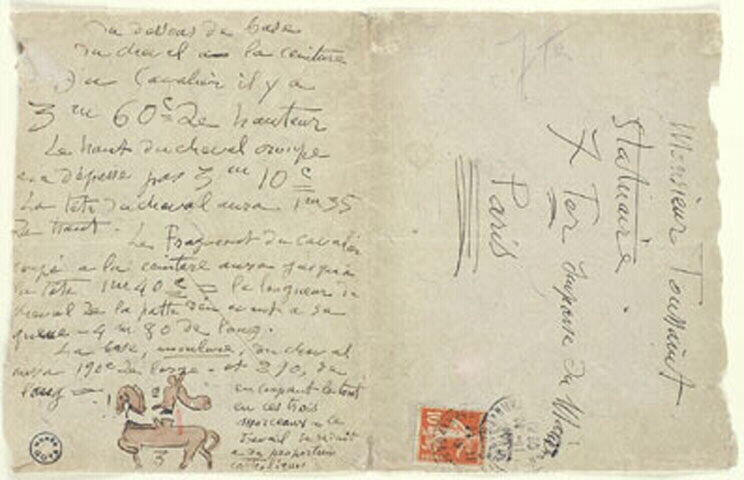 du dessous du base
du cheval a la ceinture
Du Cavalier il y a
3m 60c De hauteur
Le haut du cheval croupe
ne dépasse pas 3m 10c
La tete du cheval aura 1m35
De haut.
Le Fragment du cavalier
coupé a la ceinture aura jusqu'a
la tête 1m 40c = la longueur du
cheval de la patte de avant a sa
queue - 4m 80 de long.
La base, moulure, du cheval
aura 190c De large - et 210, de
long =
en coupant le tout
en ces trois
morceaux la
travail se réduit
a des proportions
1
2
3
Monsieur Toussaint
Statuaire
7 Ter Impasse du Maine
Paris
7 Ter
10